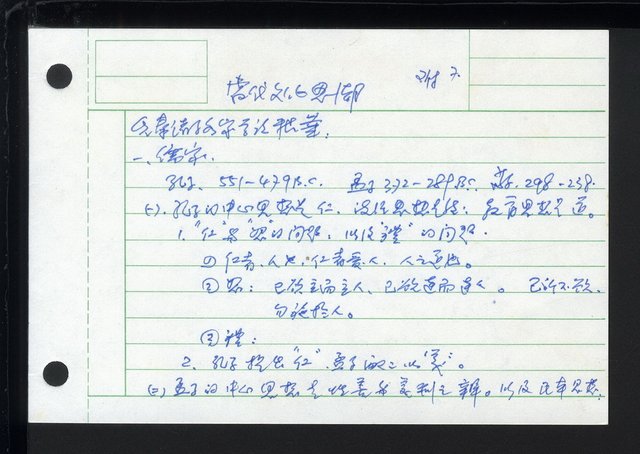 當代文化思潮 附 7.
先秦諸子各家學說精華:
一、儒家:
孔子、551-479B.C. 孟子372-289B.C. 荀子 298-238.
(一) 孔子的中心思想是仁、政治思想是德; 教育思想是道。
1. "仁"與"恕"的問題, 以及"禮"的問題.
① 仁者、人也; 仁者愛人, 人之道也。
② 恕: 己欲立而立人、己欲達而達人。 己所不欲、
勿施於人。
③ 禮:
2. 孔子 提出 "仁" 孟子 "義"。
(二) 孟子的中心思想是性善和義利之辨。以及民本思想.